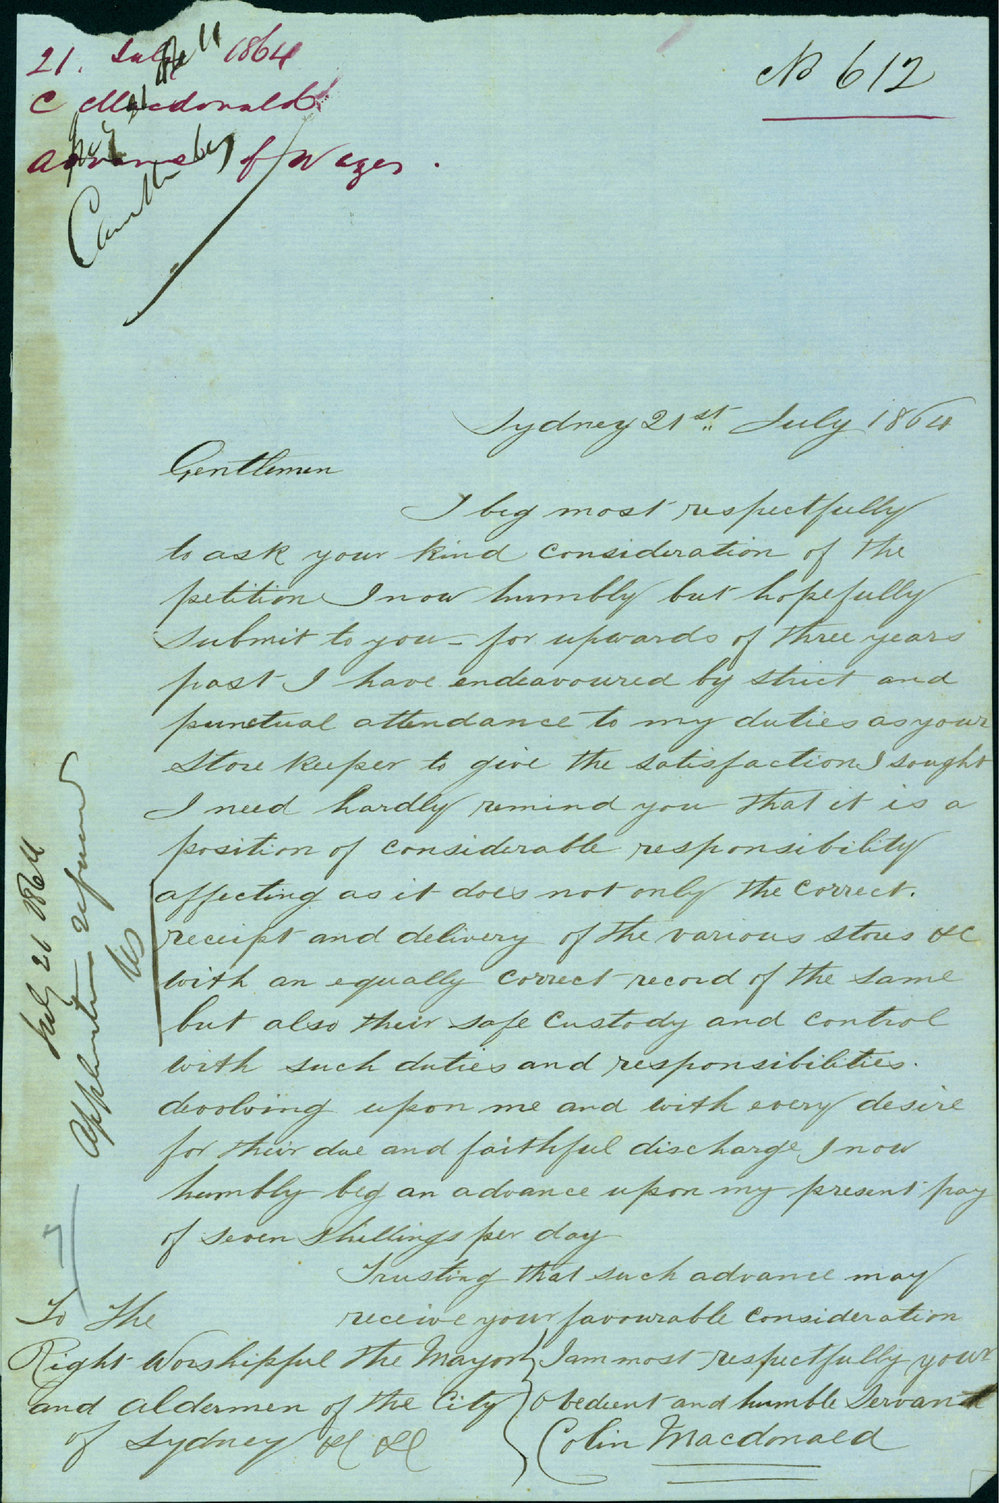 21. July 1864
C Macdonald
Advance of Wages.
No 612
Sydney 21st July 1864
Gentlemen
I beg most respectfully
to ask your kind consideration of the
petition I now humbly but hopefully
submit to you - for upwards of three years
past I have endeavoured by strict and
punctual attendance to my duties as your
Store keeper to give the satisfaction I sought
I need hardly remind you that it is a
position of considerable responsibility
affecting as it does not only the correct.
receipt and delivery of the various stores &c
with an equally correct record of the same
but also their safe custody and control
with such duties and responsibilities.
devolving upon me and with every desire
for their due and faithful discharge I now
humbly beg an advance upon my present pay
of seven shillings per day
Trusting that such advance may
receive your favourable consideration
I am most respectfully your
obedient and humble Servant
Colin Macdonald
To the
Right Worshipful the Mayor
and aldermen of the City
of Sydney &c &c
July 26 1864
Application refused